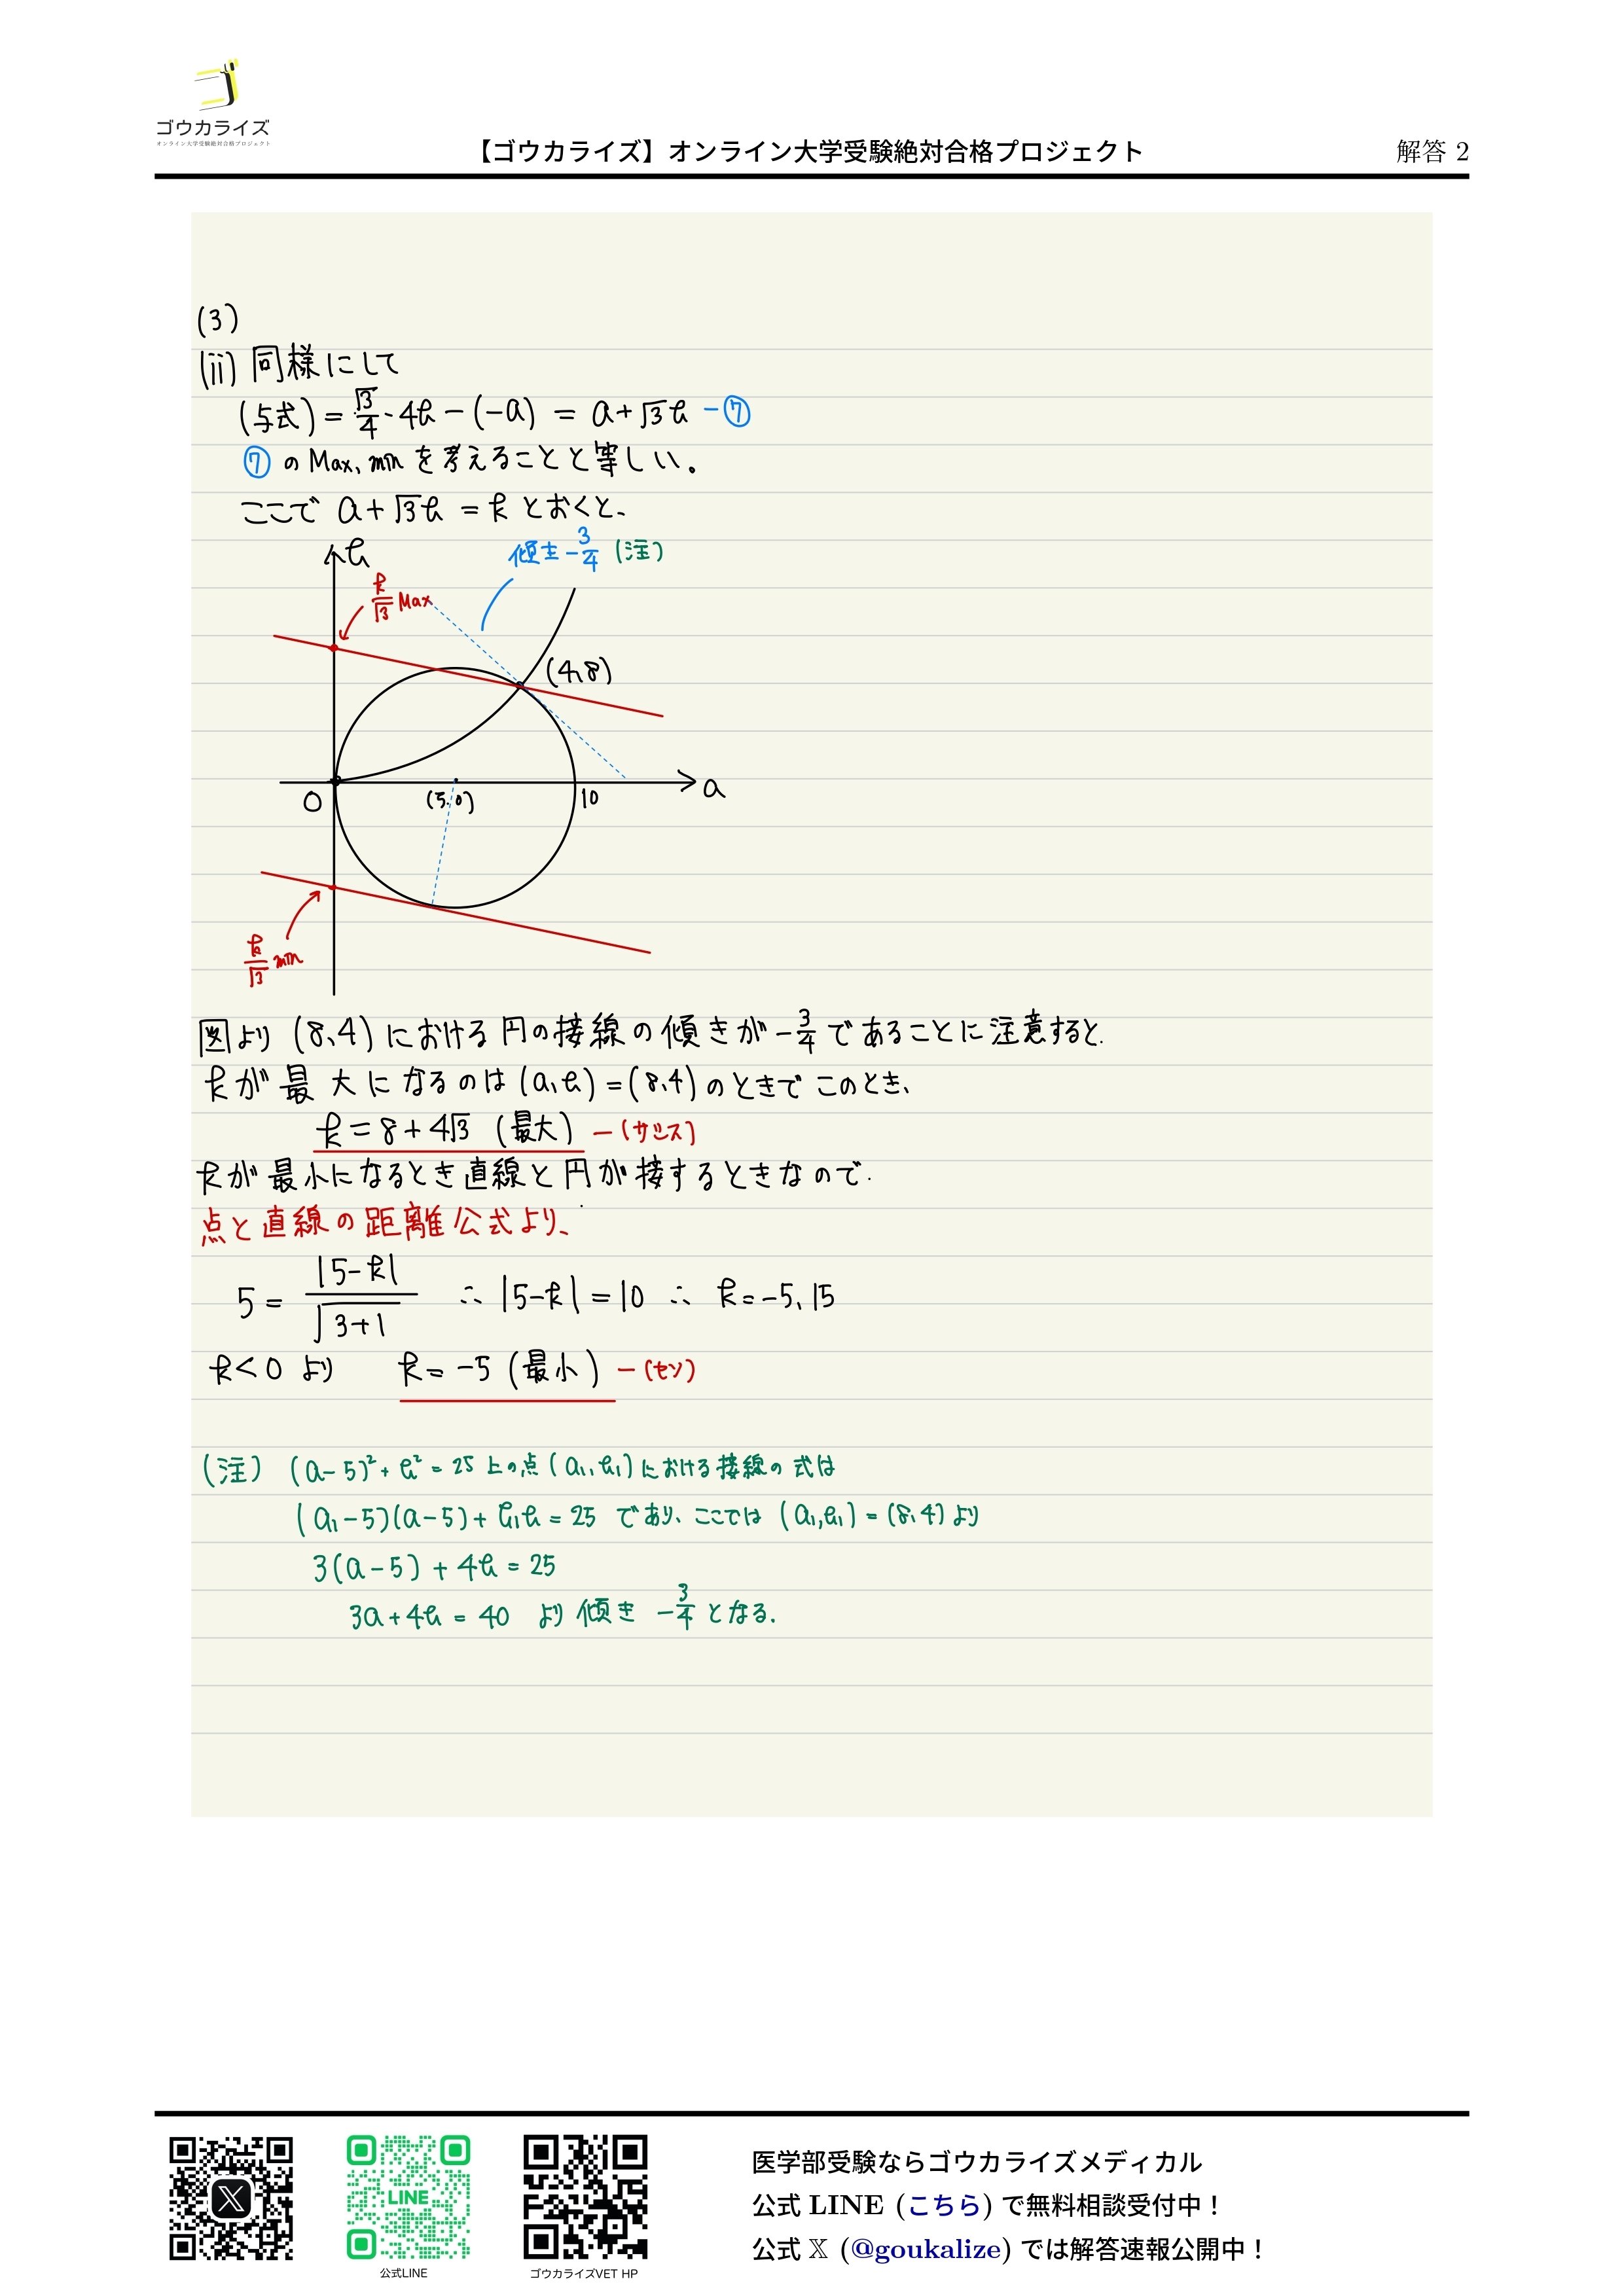 ゴウカライズ
オンライン大学受験絶対合格プロジェクト
【ゴウカライズ】オンライン大学受験絶対合格プロジェクト
解答 2
(3)
(ii) 同様にして
(与式) = √3/4・4b − (−a) = a + √3b − ⑦
⑦ の Max, min を考えることと等しい。
ここで a + √3b = k とおくと、
b
傾き −3/4 (注)
k/√3 Max
(4,8)
O
(5,0)
10
a
k/√3 min
図より (8,4) における円の接線の傾きが −3/4 であることに注意すると、
kが最大になるのは (a,b) = (8,4) のときで このとき、
k = 8 + 4√3 (最大) − (サシス)
kが最小になるとき直線と円が接するときなので.
点と直線の距離公式より、
5 = |5−k|/√(3+1) ∴ |5−k| = 10 ∴ k = −5, 15
k < 0 より k = −5 (最小) − (セソ)
(注) (a−5)² + b² = 25 上の点 (a₁, b₁) における接線の式は
(a₁−5)(a−5) + b₁b = 25 であり、ここでは (a₁,b₁) = (8,4) より
3(a−5) + 4b = 25
3a + 4b = 40 より 傾き −3/4 となる.
LINE
公式LINE
ゴウカライズVET HP
医学部受験ならゴウカライズメディカル
公式 LINE (こちら) で無料相談受付中！
公式 𝕏 (@goukalize) では解答速報公開中！